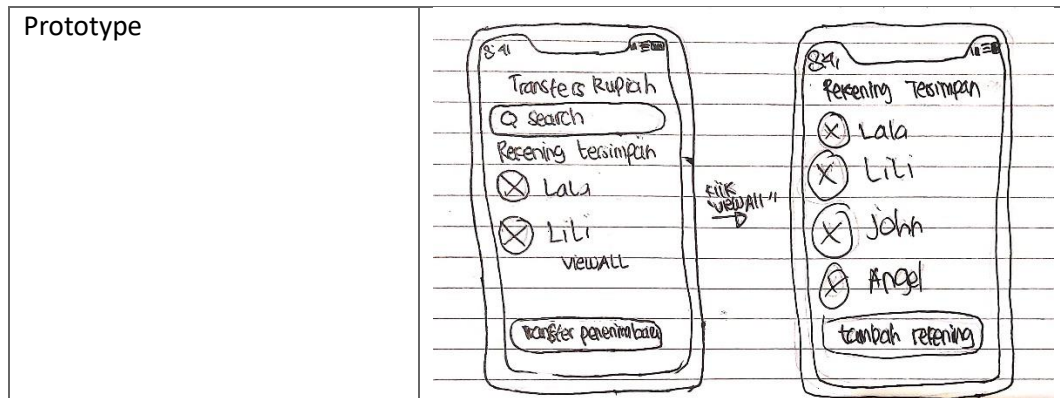 Prototype
8:41
Transfers Rupiah
Search
Rekening tersimpan
Lala
Lili
VIEWALL
Transfer penerima baru
klik
"VIEWALL"
8:41
Rekening Tersimpan
Lala
LiLi
John
Angel
tambah rekening